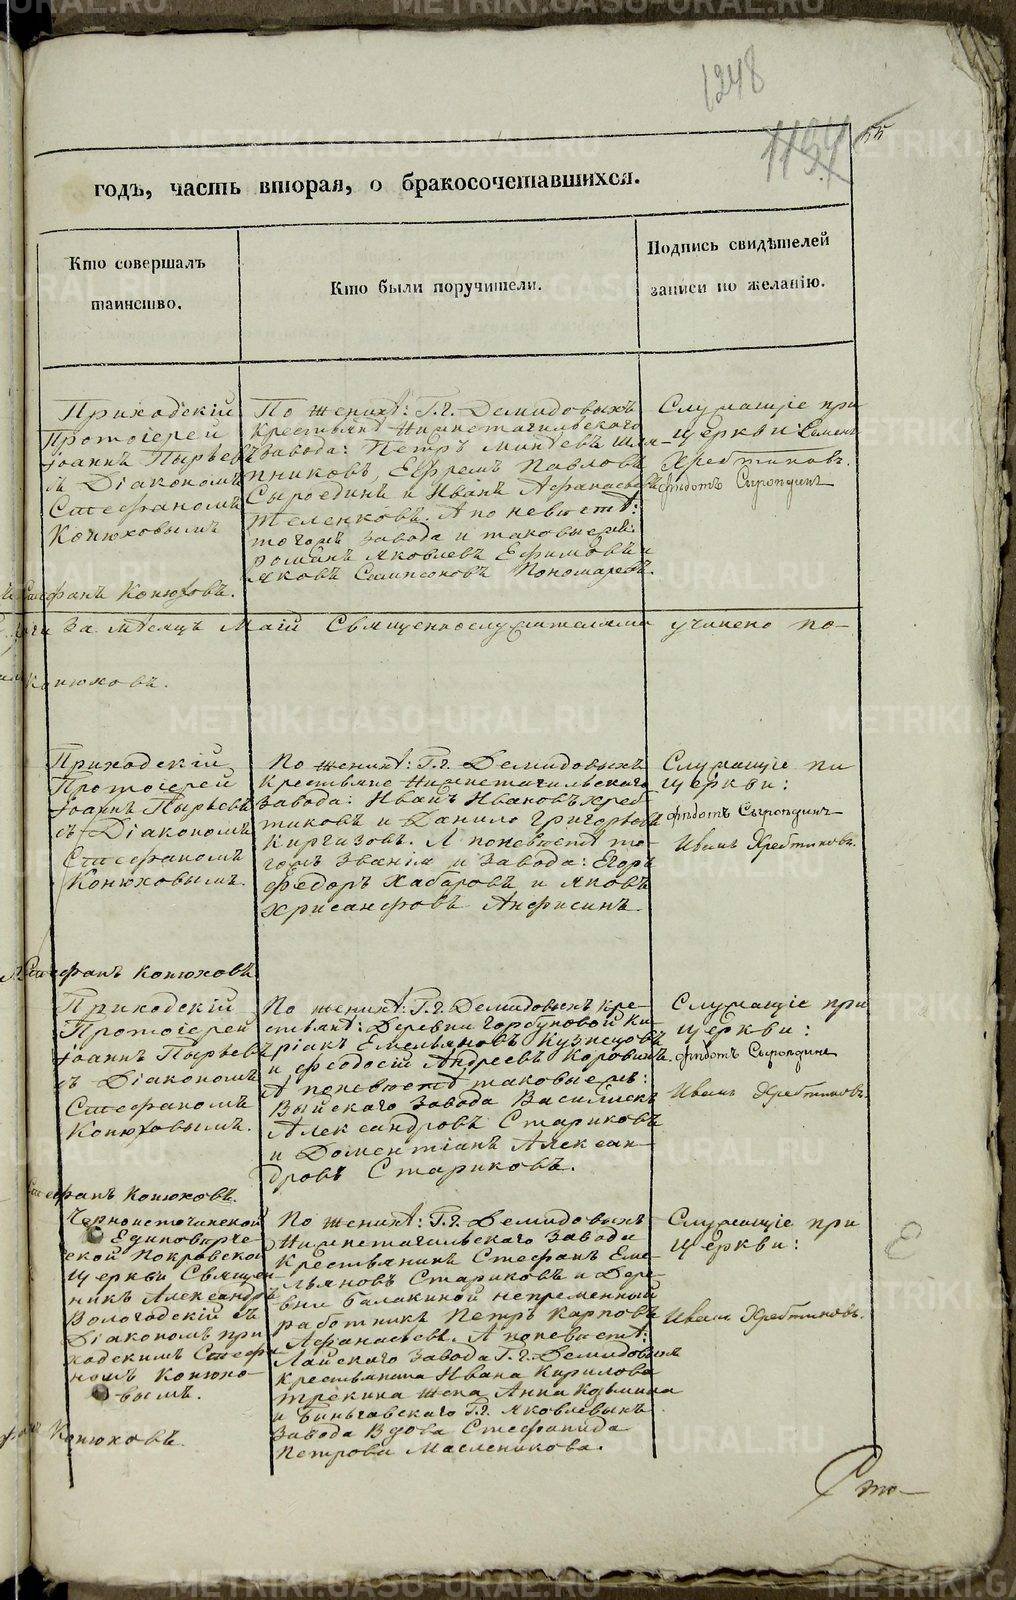 1248
1134
55
годъ, часть вторая, о бракосочетавшихся.
Кто совершалъ
таинство.
Кто были поручители.
Подпись свидѣтелей
записи по желанію.
Приходскій
Протоіерей
Іоаннъ Пырьевъ
съ Діакономъ
Стефаномъ
Конюховымъ
По женихѣ: Г.г. Демидовыхъ
крестьянѣ Нижнетагильскаго
Завода: Петръ Минѣевъ Шля-
пниковъ, Ефремъ Павловъ
Сыроединъ и Иванъ Афанасьевъ
Желенковъ. А по невѣстѣ:
тогожъ завода и таковыежъ:
Романъ Яковлевъ Ефимовъ и
Яковъ Сампсоновъ Пономаревъ.
Служащіе при
Церкви: Семенъ
Хребтиковъ.
Федотъ Сыропдинъ
Стефанъ Конюховъ.
За Мѣсяцъ Маій Священнослужителями учинено по-
Конюховъ.
Приходскій
Протоіерей
Іоаннъ Пырьевъ
съ Діакономъ
Стефаномъ
Конюховымъ.
По женихѣ: Г.г. Демидовыхъ
Крестьяне Нижнетагильскаго
Завода: Иванъ Ивановъ Хреб-
тиковъ и Данило Григорьевъ
Киргизовъ. А поневѣстѣ то-
гожъ званія и Завода: Егоръ
Федоръ Хабаровъ и Яковъ
Хрисанфовъ Анфисинъ.
Служащіе пи
Церкви:
Федотъ Сыропдинъ
Иванъ Хребтиковъ.
Стефанъ Конюховъ
Приходскій
Протоіерей
Іоаннъ Пырьевъ
съ Діакономъ
Стефаномъ
Конюховымъ.
По женихѣ: Г.г. Демидовыхъ кре-
стьянѣ: Деревни Горбуновой Ки-
ріакъ Емельяновъ Кузнецовъ
и Феодосій Андреевъ Коровинъ
А поневѣстѣ таковыежъ:
Выйскаго Завода Василискъ
Александровъ Стариковъ
и Доментіанъ Алексан-
дровъ Стариковъ.
Служащіе при
Церкви:
Федотъ Сыропдинъ
Иванъ Хребтиковъ.
Стефанъ Конюховъ.
Черноисточинской
Единовѣрче-
ской Покровской
Церкви Священ
никъ Александръ
Вологодскій съ
Діакономъ при
ходскимъ Стефа
номъ Конюхо-
вымъ.
По женихѣ: Г.г. Демидовыхъ
Нижнетагильскаго Завода
Крестьянинъ Стефанъ Еме-
льяновъ Стариковъ и Дере-
вни Балакиной непременный
работникъ Петръ Карповъ
Афанасьевъ. А поневѣстѣ:
Лайскаго Завода Г.г. Демидовыхъ
крестьянина Ивана Кирилова
Трекина жена Анна Кузмина
и Быньговскаго Г.г. Яковлевыхъ
Завода Вдова Стефанида
Петрова Масленикова.
Служащіе при
Церкви:
Иванъ Хребтиковъ.
Конюховъ.
Сто-